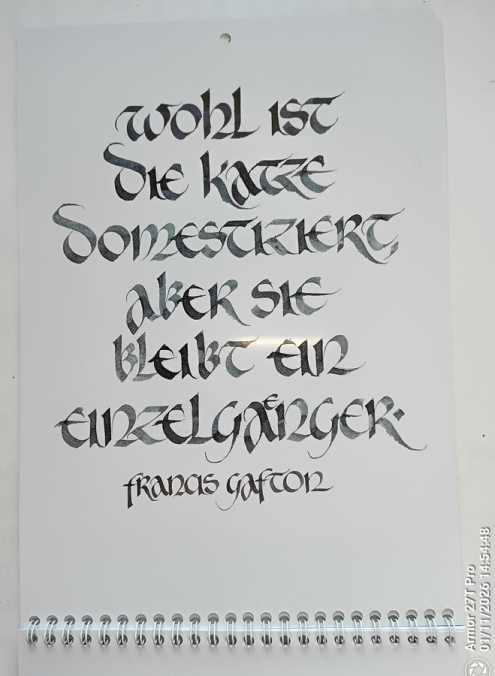 wohl ist
die katze
domestiziert,
aber sie
bleibt ein
einzelgänger.
francis gafton
Armor 27T Pro
01/11/2026 14:54:48